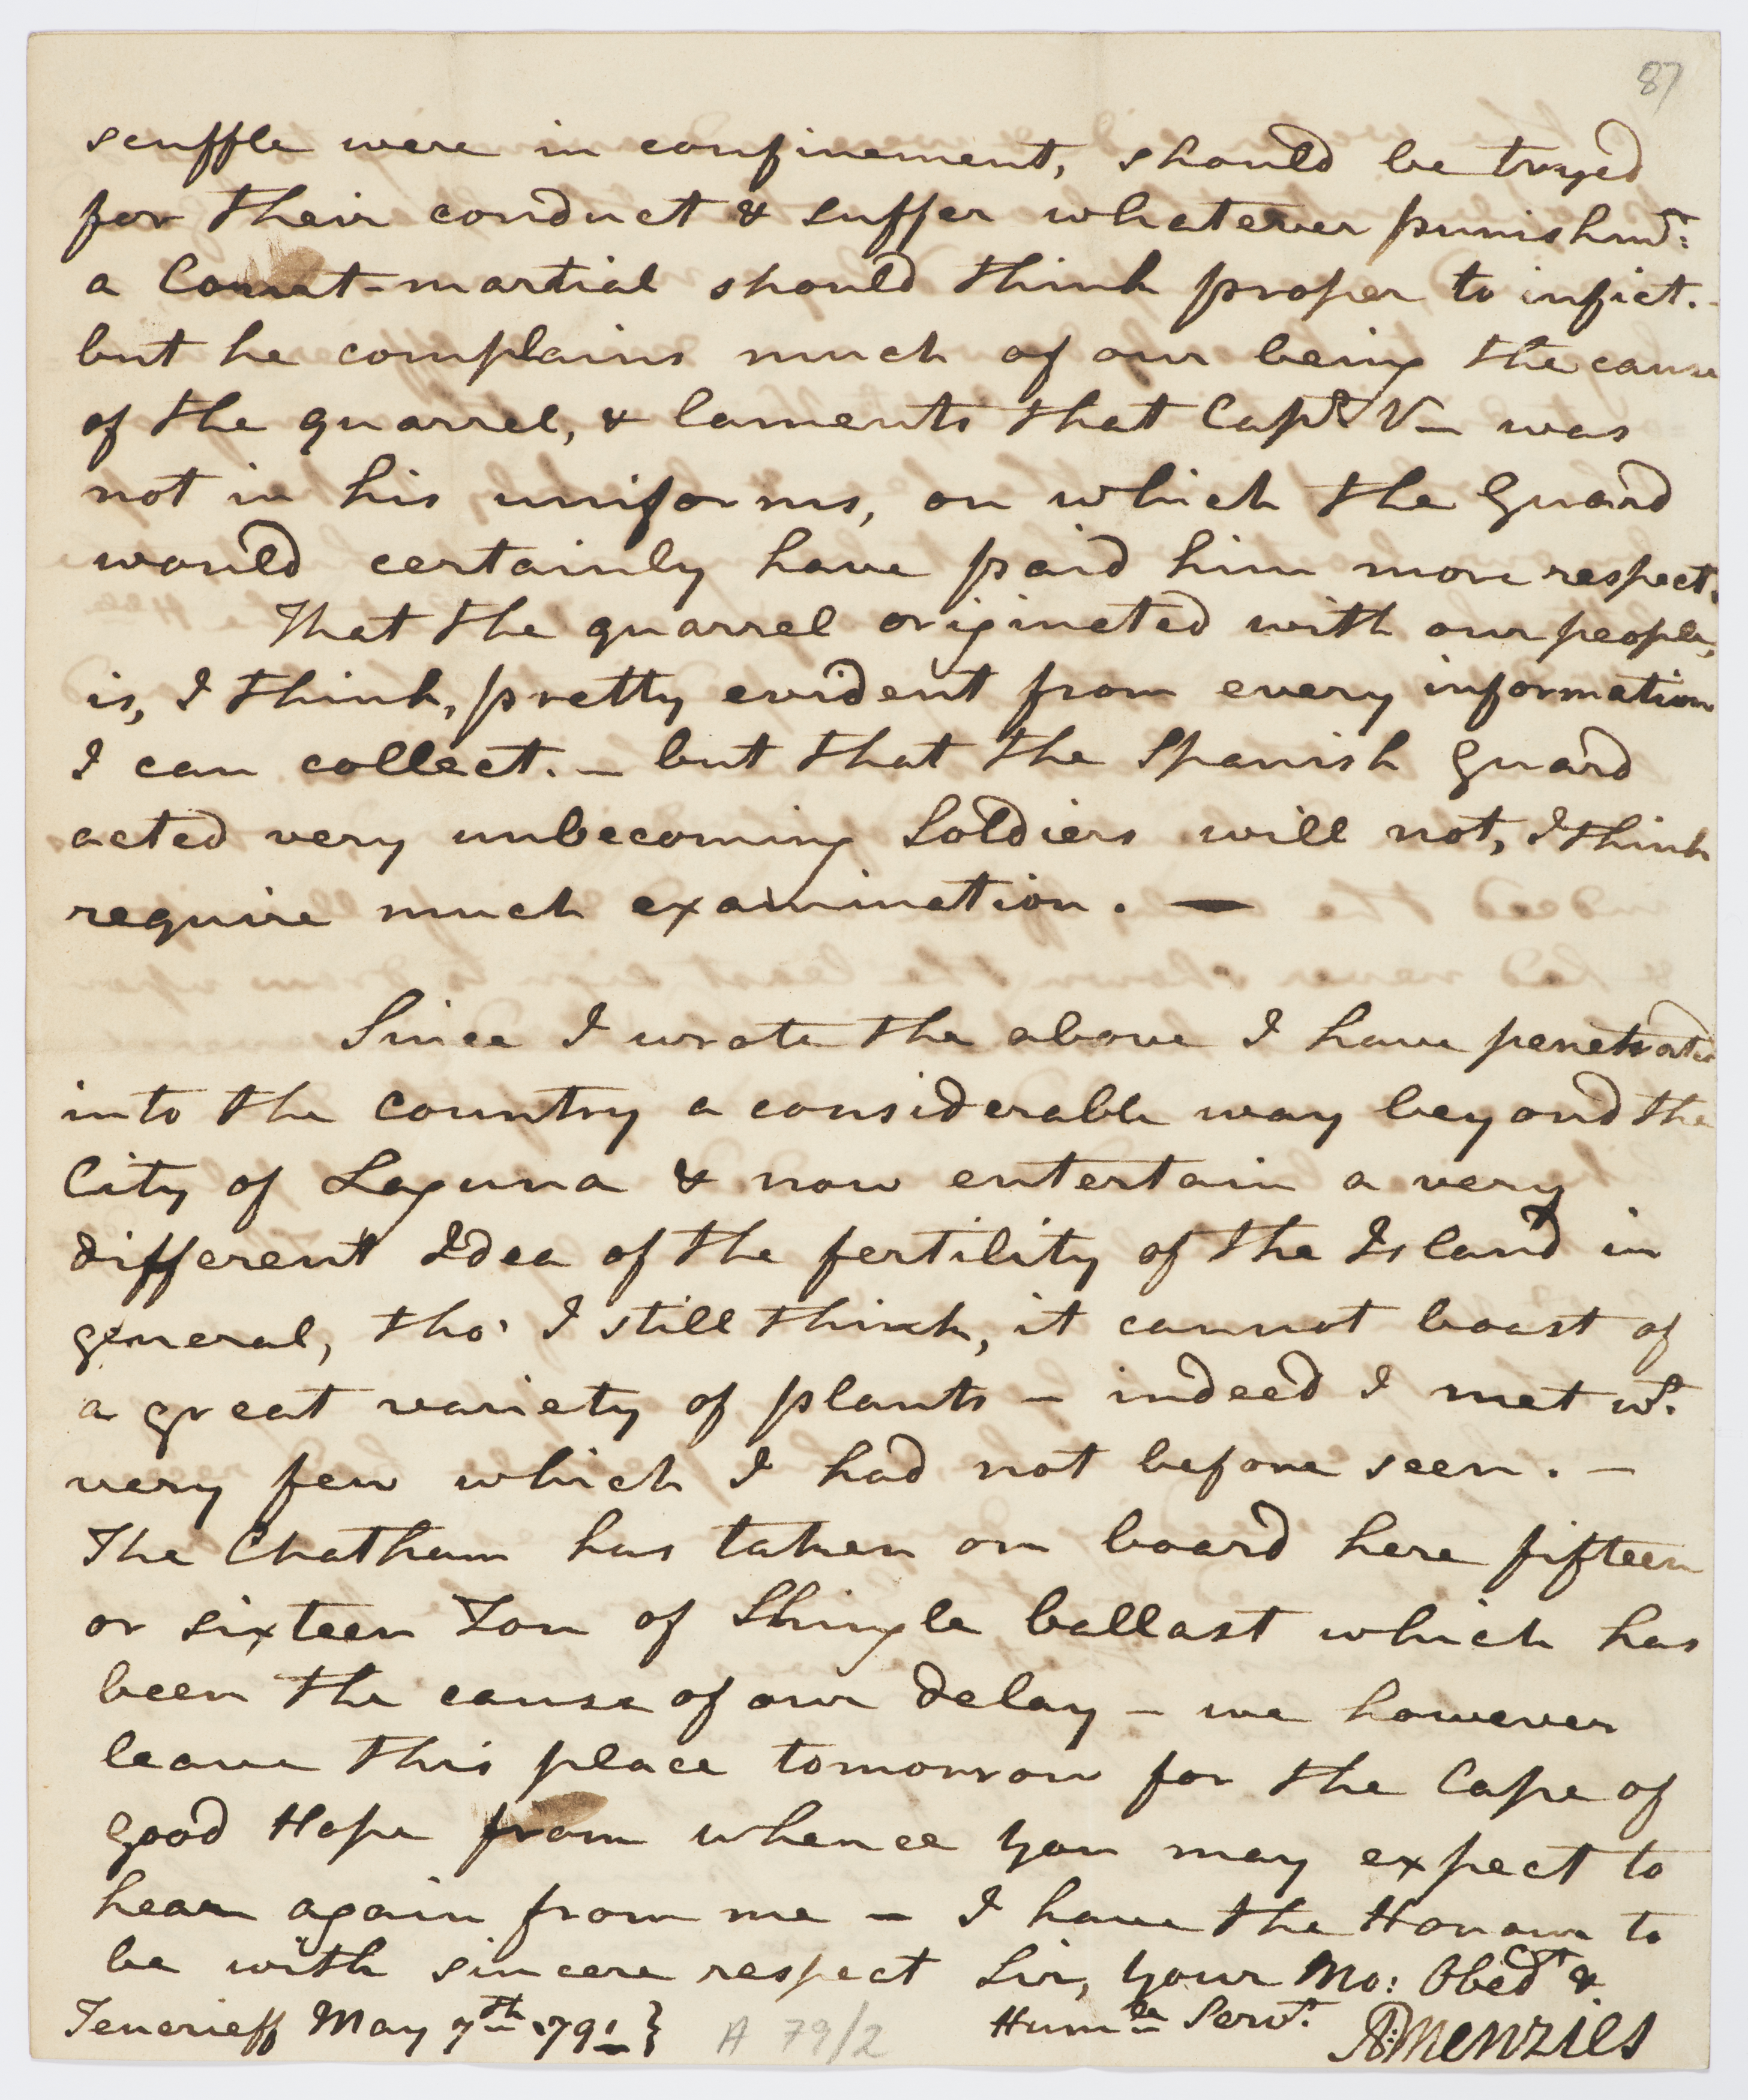 87
scuffle were in confinement, should be tryed
for their conduct & suffer whatever punishmt:
a Court-martial should think proper to infict.-
but he complains much of our being the cause
of the quarrel, & laments that Capt. V— was
not in his uniforms, on which the Guard
would certainly have paid him more respect.
That the quarrel originated with our people,
is, I think, pretty evident from every information
I can collect. — but that the Spanish Guard
acted very unbecoming Soldiers will not, I think
require much examination. —
Since I wrote the above I have penetrated
into the country a considerable way beyond the
City of Laguna & now entertain a very
different Idea of the fertility of the Island in
general, tho' I still think, it cannot boast of
a great variety of plants — indeed I met wt.
very few which I had not before seen. —
The Chatham has taken on board here fifteen
or sixteen Ton of Shingle ballast which has
been the cause of our delay — we however
leave this place tomorrow for the Cape of
Good Hope from whence you may expect to
hear again from me — I have the Honour to
be with sincere respect Sir, your Mo: Obedt &
Teneriff May 7th 791 } A 79/2 Humle Servt. A:Menzies